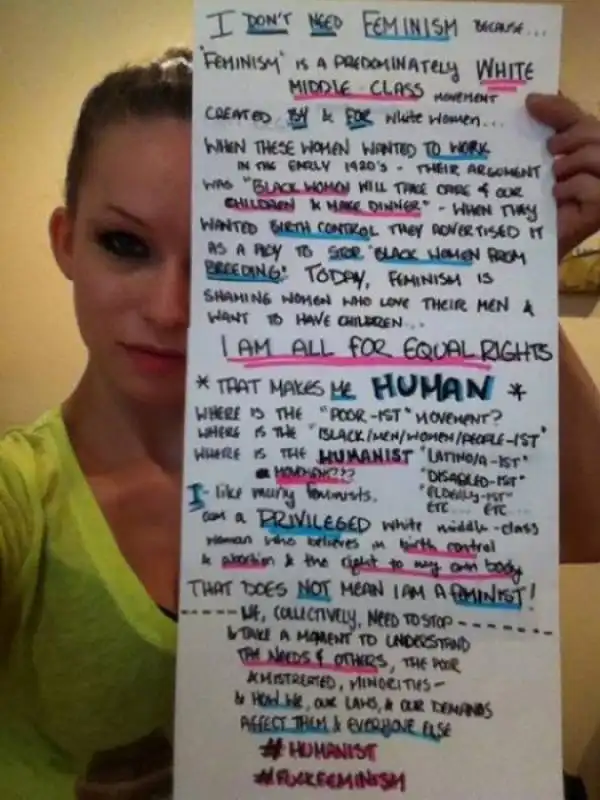 I DON'T NEED FEMINISM BECAUSE...
"FEMINISM" IS A PREDOMINATELY WHITE
MIDDLE CLASS MOVEMENT
CREATED BY & FOR white women...
WHEN THESE WOMEN WANTED TO WORK
IN THE EARLY 1920's - THEIR ARGUMENT
WAS "BLACK WOMEN WILL TAKE CARE of OUR
CHILDREN & MAKE DINNER" - WHEN THEY
WANTED BIRTH CONTROL THEY ADVERTISED IT
AS A WAY TO STOP "BLACK WOMEN FROM
BREEDING". TODAY, FEMINISM IS
SHAMING WOMEN WHO LOVE THEIR MEN &
WANT TO HAVE CHILDREN...
I AM ALL FOR EQUAL RIGHTS
* THAT MAKES ME HUMAN *
WHERE IS THE "POOR-IST" MOVEMENT?
WHERE IS THE "BLACK/MEN/WOMEN/PEOPLE-IST"
WHERE IS THE HUMANIST "LATINO/A-IST"
MOVEMENT??? "DISABLED-IST"
I - like many feminists. "ELDERLY-IST"
ETC.... ETC....
am a PRIVILEGED white middle-class
woman who believes in birth control
& abortion & the right to my own body
THAT DOES NOT MEAN I AM A FEMINIST!
WE, COLLECTIVELY, NEED TO STOP
& TAKE A MOMENT TO UNDERSTAND
THE NEEDS of OTHERS, THE POOR
& MISTREATED, MINORITIES -
& HOW WE, OUR LAWS, & OUR DEMANDS
AFFECT THEM & EVERYONE ELSE
# HUMANIST
#FUCKFEMINISM